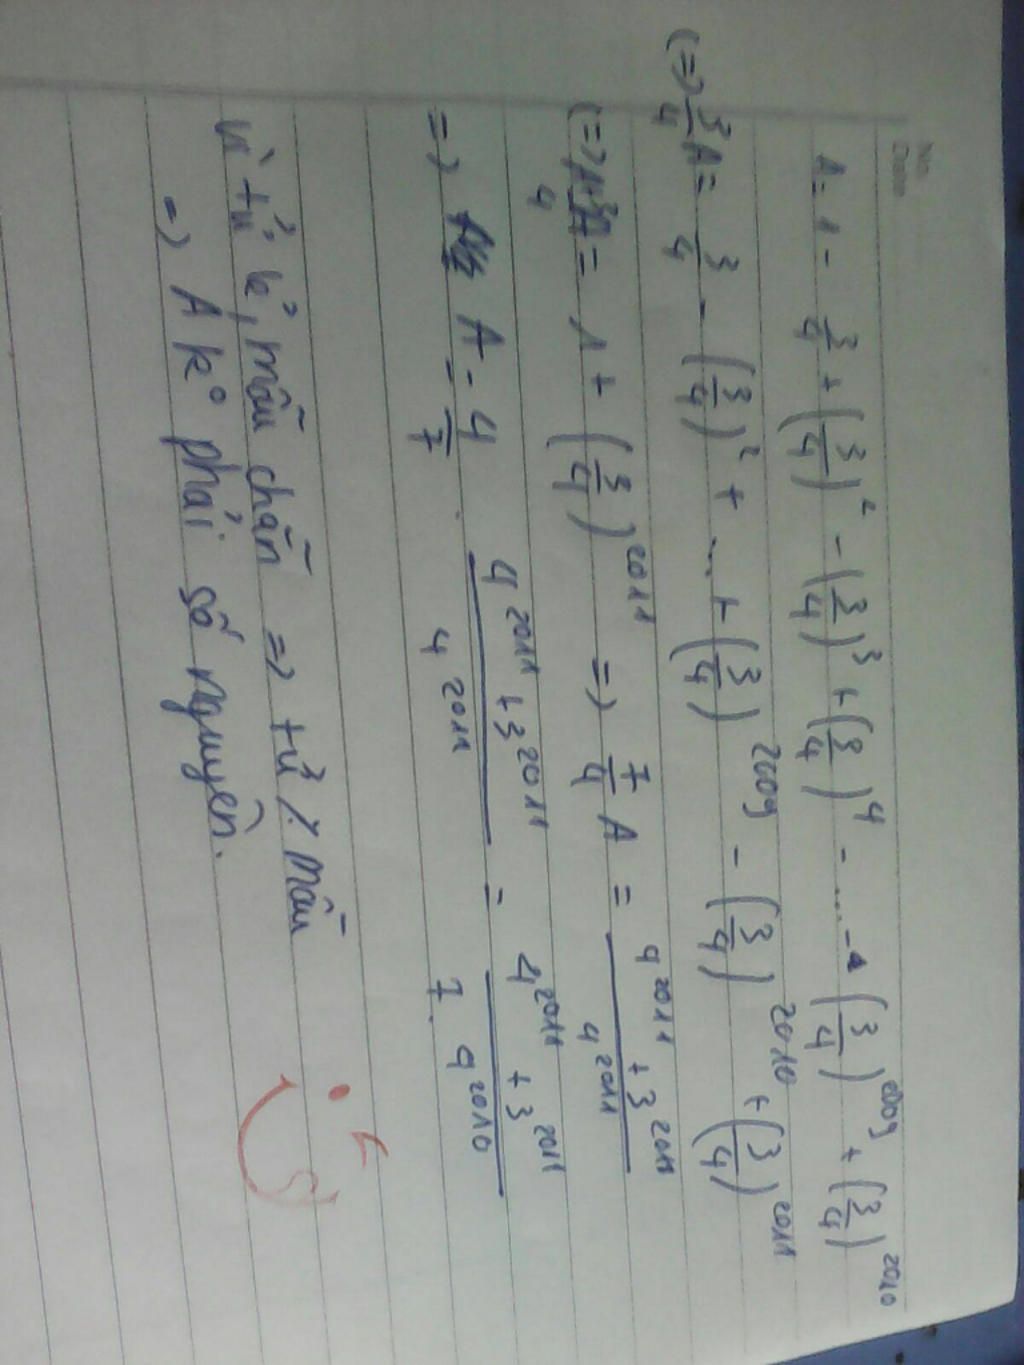 No.
Date
A = 1 - 3/4 + (3/4)^2 - (3/4)^3 + (3/4)^4 - .... - (3/4)^2009 + (3/4)^2010
(=) 3/4 A = 3/4 - (3/4)^2 + ... + (3/4)^2009 - (3/4)^2010 + (3/4)^2011
(=) A + 3/4 A = 1 + (3/4)^2011 => 7/4 A = (4^2011 + 3^2011)/4^2011
=> A = 4/7 . (4^2011 + 3^2011)/4^2011 = (4^2011 + 3^2011)/(7 . 4^2010)
Vì tử lẻ, mẫu chẵn => tử ٪ mẫu
=> A k° phải số nguyên.